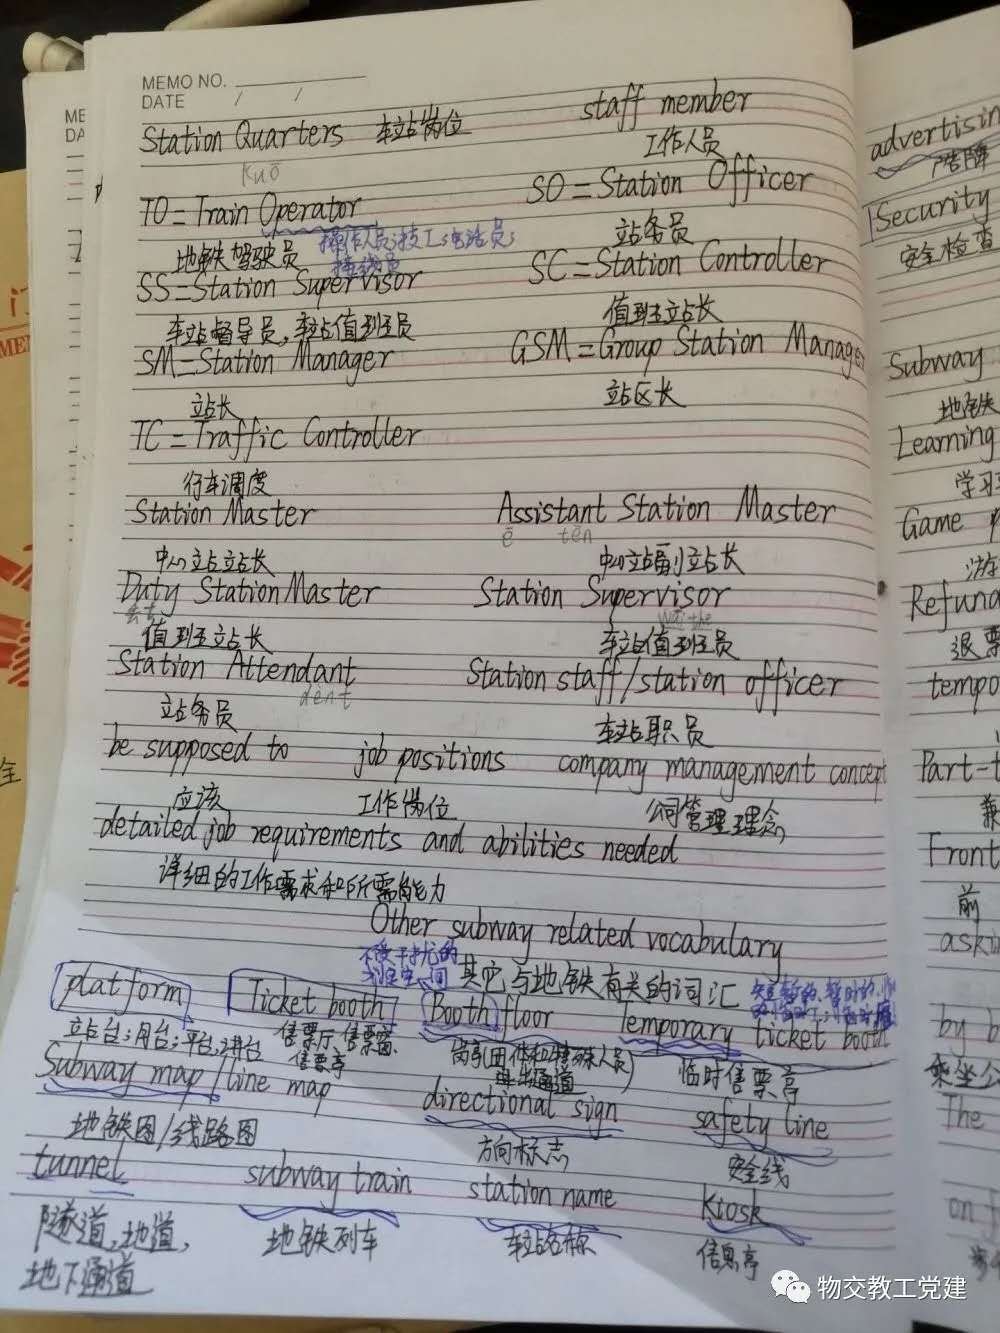 MEMO NO.
DATE / /
Station Quarters 车站岗位 staff member
工作人员
Kuō
TO=Train Operator SO=Station Officer
地铁驾驶员 操作人员;技工;电话员; 站务员
接线员
SS=Station Supervisor SC=Station Controller
车站督导员,车站值班员 值班站长
SM=Station Manager GSM=Group Station Manager
站长 站区长
TC=Traffic Controller
行车调度
Station Master Assistant Station Master
ē tēn
中心站站长 中心站副站长
Duty Station Master Station Supervisor
值班站长 车站值班员
Station Attendant Station staff/station officer
dent
站务员 车站职员
be supposed to job positions company management concept
应该 工作岗位 公司管理理念
detailed job requirements and abilities needed
详细的工作需求和所需能力
Other subway related vocabulary
不受干扰的 其它与地铁有关的词汇
platform Ticket booth Booth floor Temporary ticket booth
站台;月台;平台;讲台 售票厅、售票窗、 临时售票亭
售票亭
Subway map/line map directional sign safety line
地铁图/线路图 方向标志 安全线
tunnel subway train station name kiosk
隧道,地道, 地铁列车 车站名称 信息亭
地下通道
advertisin
广告牌
Security
安全检查
Subway
地铁
Learning
学习
Game
游
Refund
退票
tempo
Part-t
兼
Front
前
askin
by b
乘坐公
The
on f
物交教工党建